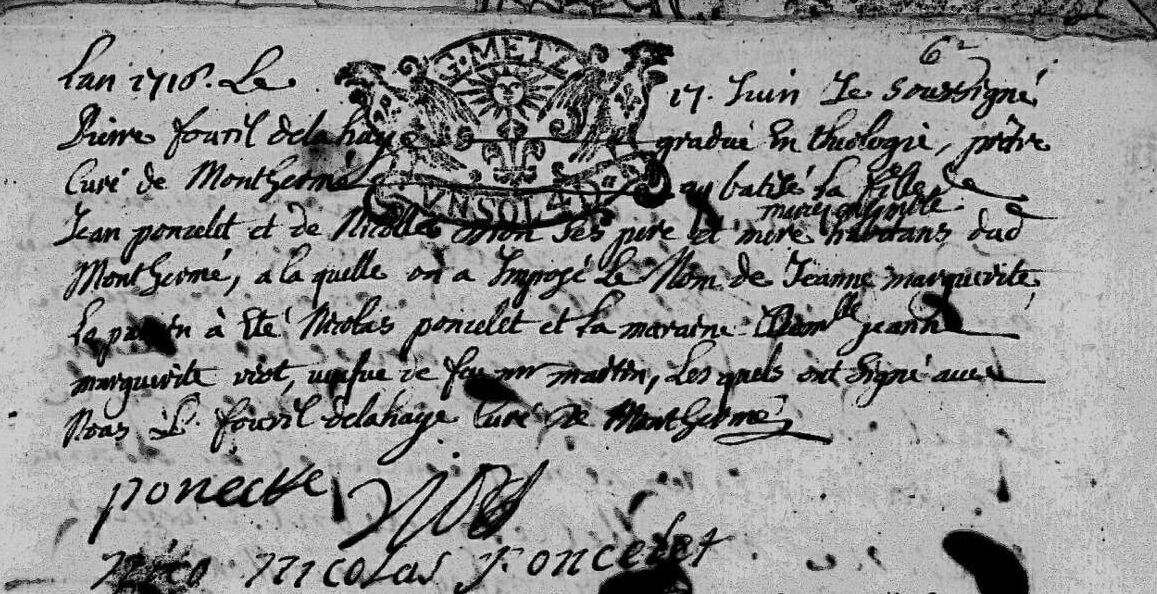 6
Lan 1716. Le 17. Juin Je soussigné
G. METZ
Pierre fouril delahaye gradué En théologie, prêtre
Curé de MontHermé ay batisé la fille de
VN SOL 4 D
mariés ensemble
Jean poncelet et de Nicolle ses pere et mere habitans dud
MontHermé, a la quelle on a Imposé Le Nom de Jeanne marguerite
Le parain à Eté Nicolas poncelet et La maraine Damlle jeanne
marguerite viot, veufve de feu mr martin, Lesquels ont signé avec
Nous P. fouril delahaye Curé De MontHermé
viot
nicolas poncelet